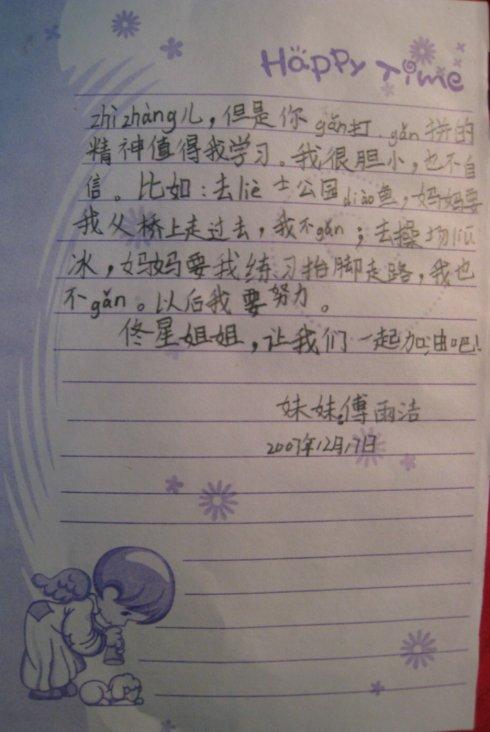 Happy Time
zhì zhàng儿，但是你gǎn打、gǎn拼的
精神值得我学习。我很胆小，也不自
信。比如：去liè士公园diào鱼，妈妈要
我从桥上走过去，我不gǎn；去操场liū
冰，妈妈要我练习抬脚走路，我也
不gǎn。以后我要努力。
佟星姐姐，让我们一起加油吧！
妹妹：傅雨洁
2007年12月17日